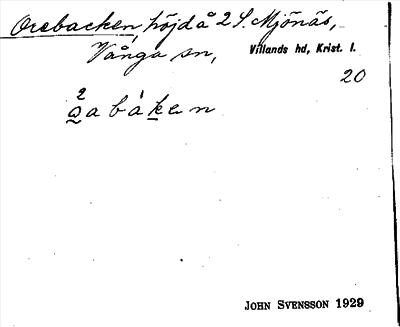 Orebacken, höjd å 2 S. Mjönäs,
Vånga sn, Villands hd, Krist. l.
20
2
a a b à k e n
JOHN SVENSSON 1929